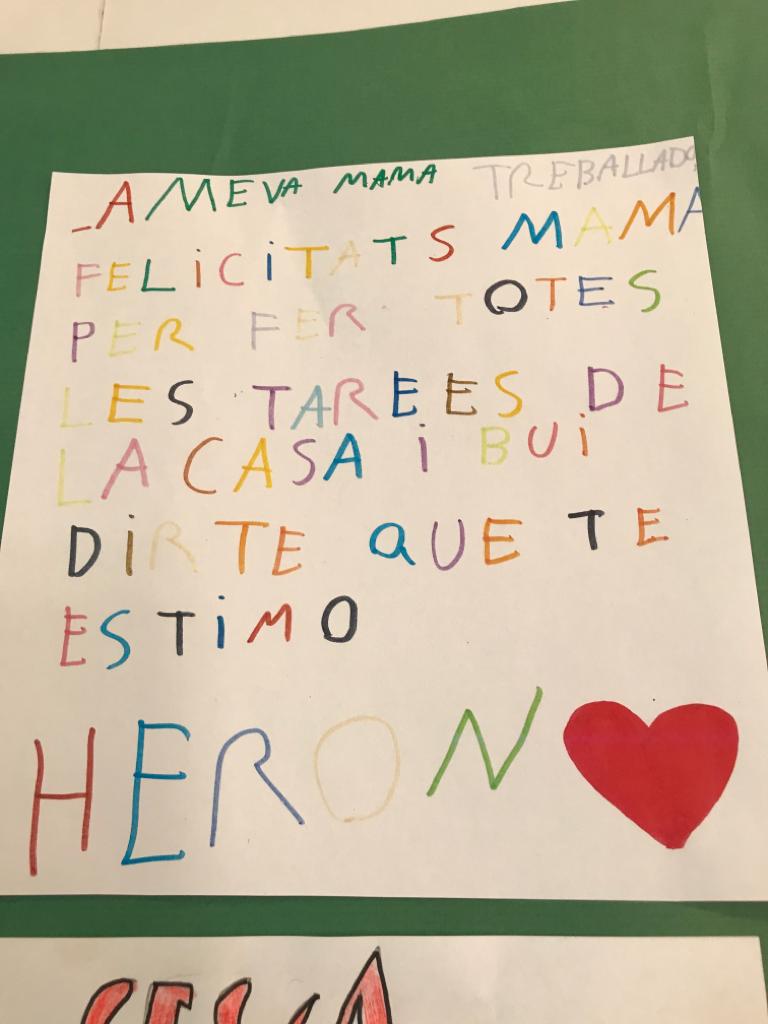 LA MEVA MAMA TREBALLADO
FELiCiTATS MAMA
PER FER TOTES
LES TAREES DE
LA CASA i BUi
DiRTE QUE TE
ESTiMO
HERON